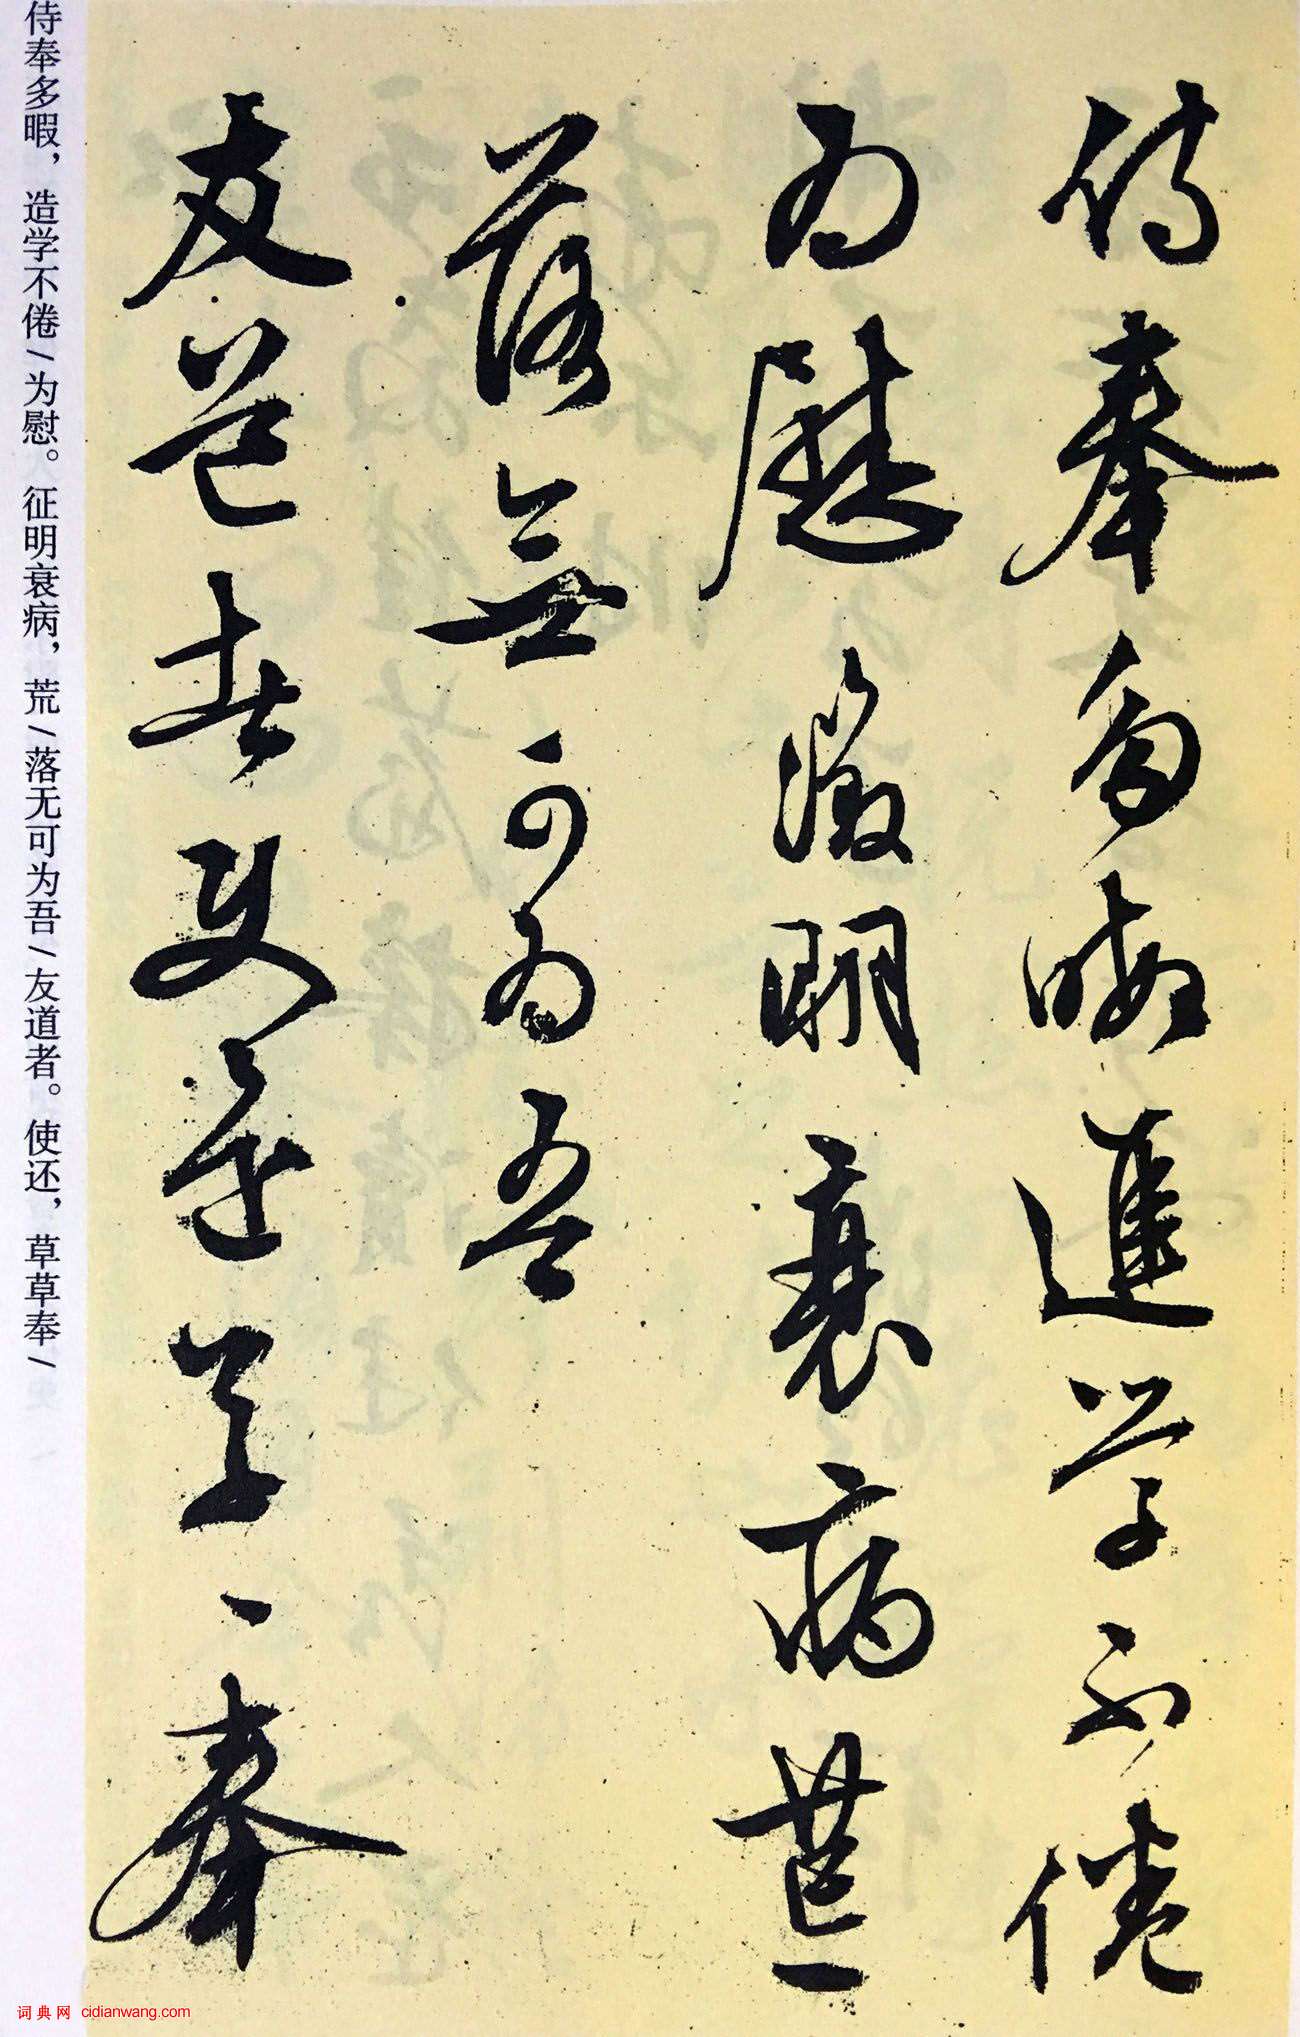 侍奉多暇進学不倦
为慰徵明衰病荒
落無可为吾
友道者使还草々奉
侍奉多暇，造学不倦/为慰。征明衰病，荒/落无可为吾/友道者。使还，草草奉/
词典网 cidianwang.com